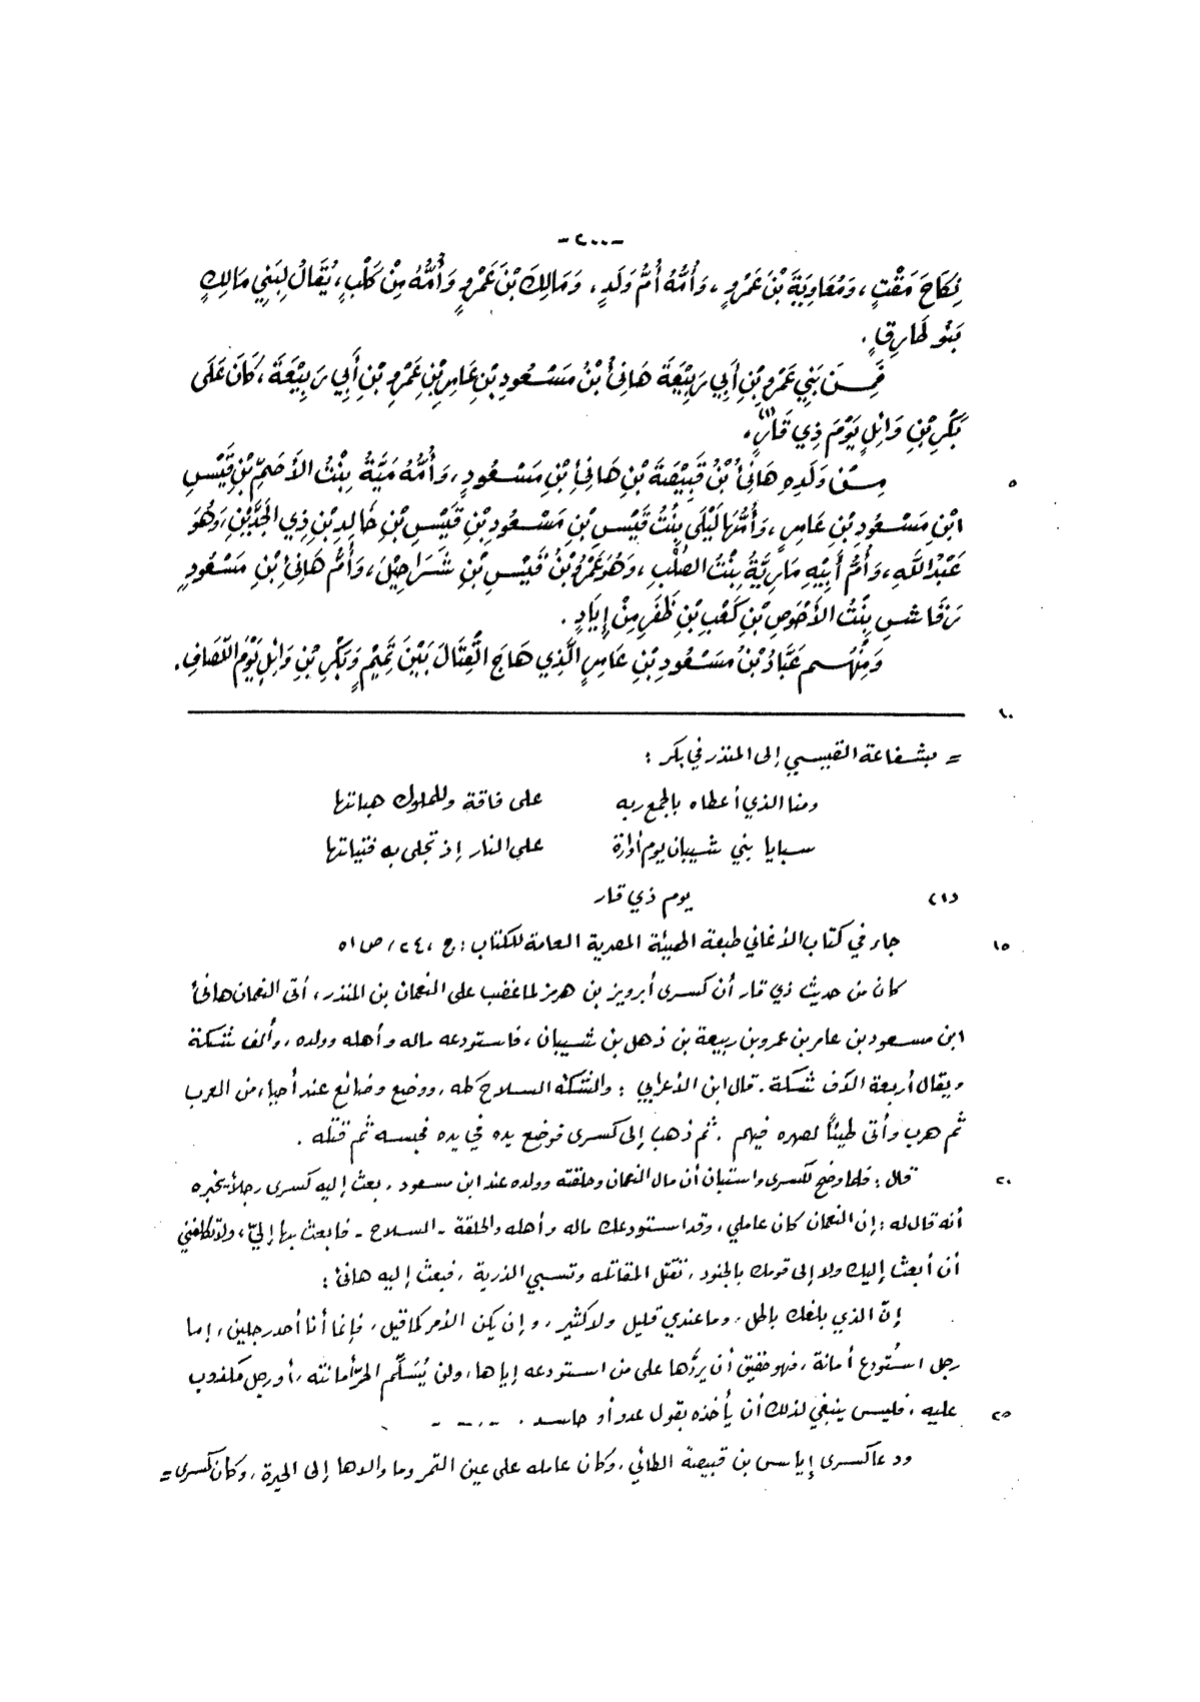 -٢٠٠-
نِكَاحَ مَقْتٍ، وَمُعَاوِيَةَ بْنَ عَمْرٍو، وَأُمُّهُ أُمُّ وَلَدٍ، وَمَالِكَ بْنَ عَمْرٍو وَأُمُّهُ مِنْ كَلْبٍ، يُقَالُ لِبَنِي مَالِكٍ
بَنُو طَارِقٍ.
فَمِنْ بَنِي عَمْرِو بْنِ أَبِي رَبِيْعَةَ هَانِئُ بْنُ مَسْعُودِ بْنِ عَامِرِ بْنِ عَمْرِو بْنِ أَبِي رَبِيْعَةَ، كَانَ عَلَى
بَكْرِ بْنِ وَائِلٍ يَوْمَ ذِي قَارٍ(١).
٥ مِنْ وَلَدِهِ هَانِئُ بْنُ قَبِيْصَةَ بْنِ هَانِئِ بْنِ مَسْعُودٍ، وَأُمُّهُ مَيَّةُ بِنْتُ الأَصَمِّ بْنِ قَيْسِ
ابْنِ مَسْعُودِ بْنِ عَامِرٍ، وَأُمُّهَا لَيْلَى بِنْتُ قَيْسِ بْنِ مَسْعُودِ بْنِ قَيْسِ بْنِ خَالِدِ بْنِ ذِي الجَدَّيْنِ، وَهُوَ
عَبْدُ اللَّهِ، وَأُمُّ أَبِيْهِ مَارِيَّةُ بِنْتُ الصُّلْبِ، وَهُوَ عَمْرُو بْنُ قَيْسِ بْنِ شَرَاحِيْلَ، وَأُمُّ هَانِئِ بْنِ مَسْعُودٍ
رَقَاشِ بِنْتُ الأَحْوَصِ بْنِ كَعْبِ بْنِ ظَفَرٍ مِنْ إِيَادٍ.
وَمِنْهُم عَبَّادُ بْنُ مَسْعُودِ بْنِ عَامِرٍ الَّذِي هَاجَ القِتَالَ بَيْنَ تَمِيْمٍ وَبَكْرِ بْنِ وَائِلٍ يَوْمَ اللَّصَافِ.
١٠
= بشفاعة القيسي إلى المنذر في بكر :
ومنا الذي أعطاه بالجمع ربه على فاقة وللملوك هباتها
سبايا بني شيبان يوم أوارة على النار إذ تجلى به فتياتها
(١) يوم ذي قار
١٥ جاء في كتاب الأغاني طبعة الهيئة المصرية العامة للكتاب : ج ٢٤، ص ٥١
كان من حديث ذي قار أن كسرى أبرويز بن هرمز لما غضب على النعمان بن المنذر، أتى النعمان هانئ
ابن مسعود بن عامر بن عمرو بن ربيعة بن ذهل بن شيبان، فاستودعه ماله وأهله وولده، وألف شكة
ويقال أربعة آلاف شكة. قال ابن الأعرابي : والشكة السلاح كله، ووضع وضائع عند أحياء من العرب
ثم هرب وأتى طيئاً لصهره فيهم. ثم ذهب إلى كسرى فوضع يده في يده فحبسه ثم قتله.
٢٠ قال : فلما وضح لكسرى واستبان أن مال النعمان وحلقته وولده عند ابن مسعود، بعث إليه كسرى رجلاً يخبره
أنه قال له : إن النعمان كان عاملي، وقد استودعك ماله وأهله والحلقة - السلاح - فابعث بها إليّ، ولا تكلفني
أن أبعث إليك ولا إلى قومك بالجنود، تقتل المقاتلة وتسبي الذرية، فبعث إليه هانئ :
إنّ الذي بلغك باطل، وما عندي قليل ولا كثير، وإن يكن الأمر كما قيل، فإنما أنا أحد رجلين، إما
رجل استُودع أمانة، فهو حقيق أن يردّها على من استودعه إياها، ولن يُسَلِّم الحرّ أمانته، أو رجل مكذوب
٢٥ عليه، فليس ينبغي لذلك أن يأخذه بقول عدو أو حاسد. - - - -
ودعا كسرى إياس بن قبيصة الطائي، وكان عامله على عين التمر وما والاها إلى الحيرة، وكان كسرى =